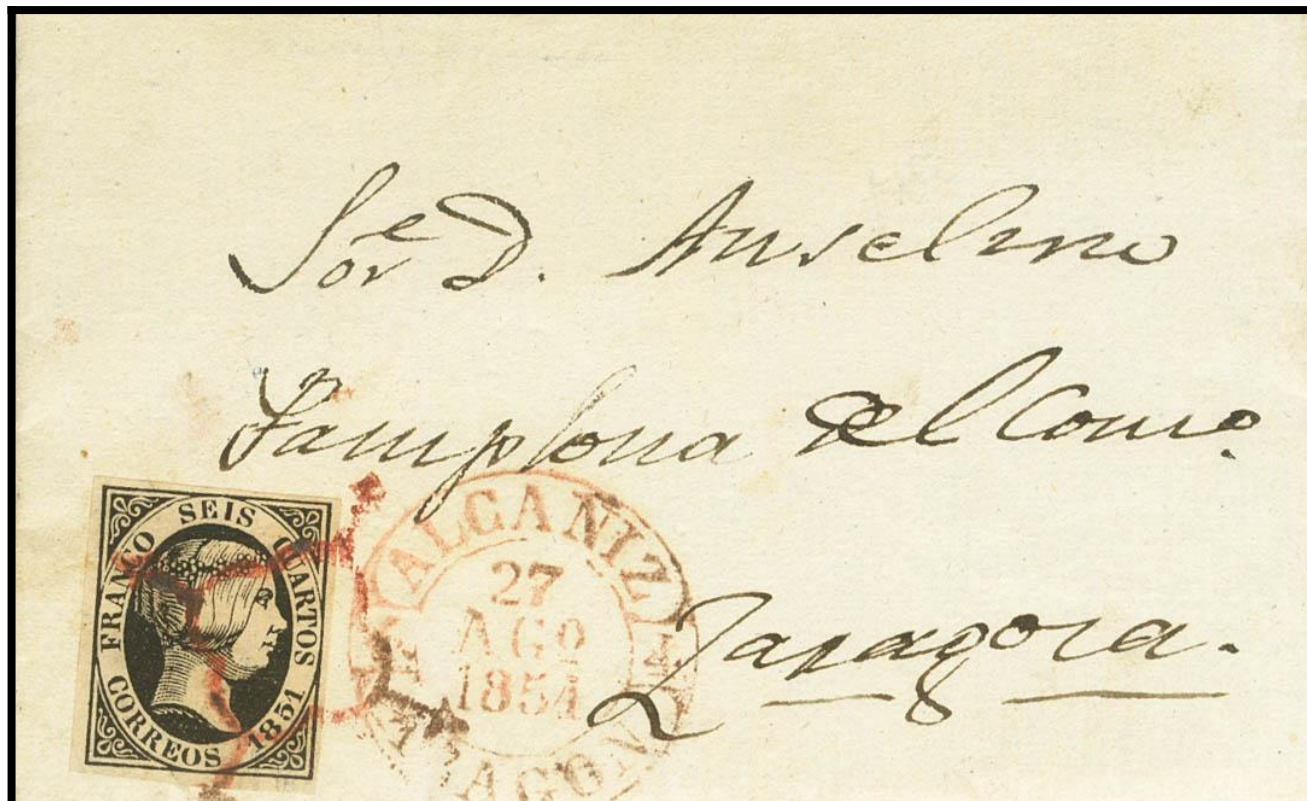 Sor^e D. Anselmo
Pamplona del Comº.
Zaragoza.
FRANCO SEIS CUARTOS
CORREOS 1851
ALCAÑIZ
27
AGO
1851
ARAGON